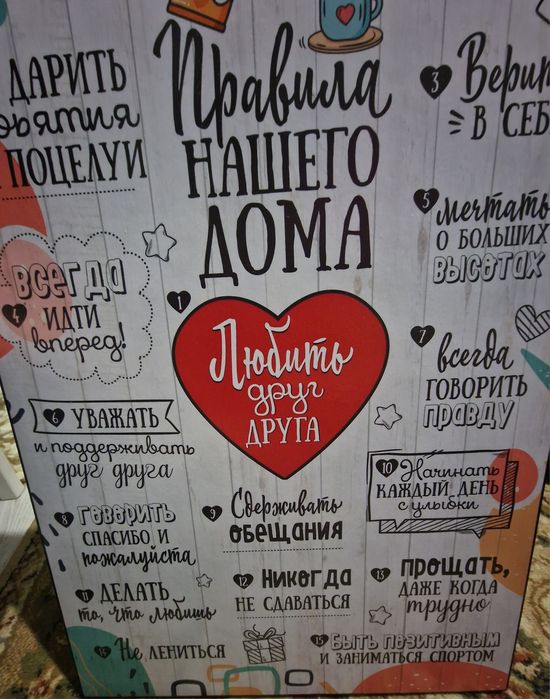 Правила
НАШЕГО
ДОМА
1
Любить
друг
ДРУГА
ДАРИТЬ
ПОЦЕЛУИ
3
В
4
ВСЕГДА
ИДТИ
вперед!
5
мечтать
О БОЛЬШИХ
ВЫСОТАХ
6 УВАЖАТЬ
и поддерживать
друг друга
7
всегда
ГОВОРИТЬ
ПРАВДУ
8 ГОВОРИТЬ
СПАСИБО И
пожалуйста
9 Сдерживать
ОБЕЩАНИЯ
10 Начинать
КАЖДЫЙ ДЕНЬ
с улыбки
11 ДЕЛАТЬ
то, что любишь
12 НИКОГДА
НЕ СДАВАТЬСЯ
13 ПРОЩАТЬ,
ДАЖЕ КОГДА
трудно
Не ЛЕНИТЬСЯ
15 БЫТЬ ПОЗИТИВНЫМ
И ЗАНИМАТЬСЯ СПОРТОМ